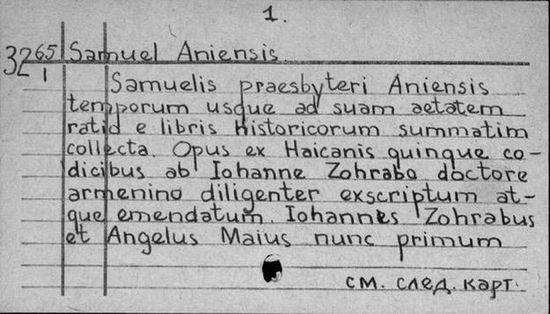 1.
32 65/1 Samuel Aniensis.
Samuelis praesbyteri Aniensis
temporum usque ad suam aetatem
ratio e libris historicorum summatim
collecta. Opus ex Haicanis quinque co-
dicibus ab Iohanne Zohrabo doctore
armenino diligenter exscriptum at-
que emendatum. Iohannes Zohrabus
et Angelus Maius nunc primum
см. след. карт.